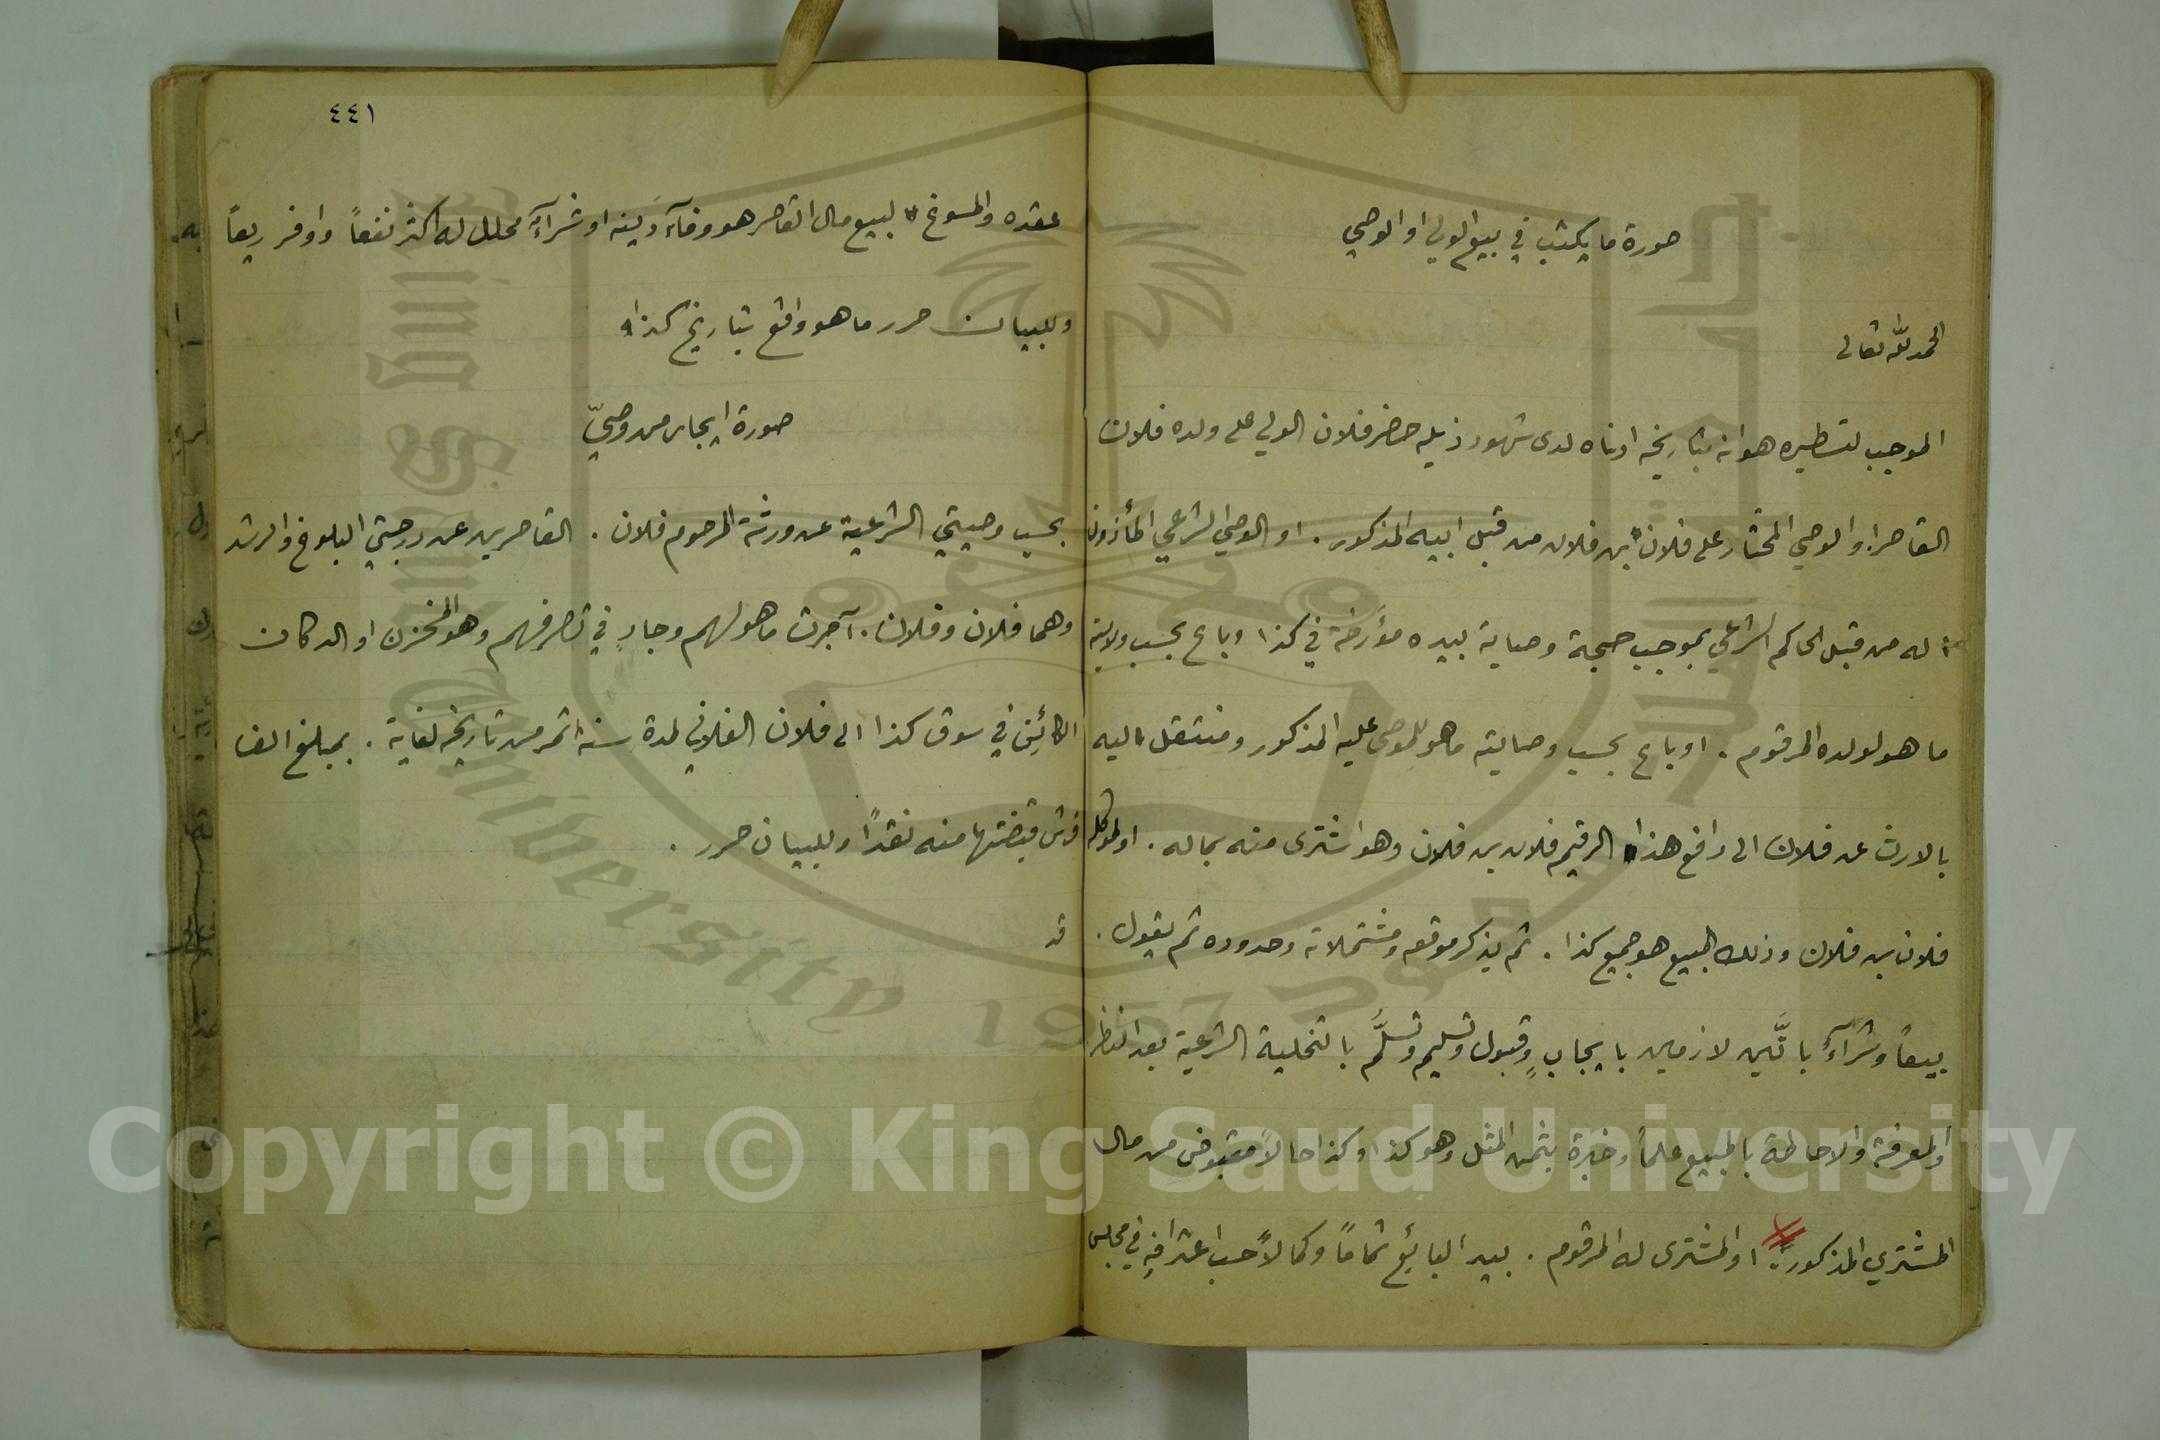 صورة ما يكتب في بيع الولي او الوصي
الحمد لله تعالى
الموجب لتسطيره هو انه بتاريخه ادناه لدى شهود ذيله حضر فلان الولي على ولده فلان
القاصر او الوصي المختار على فلان بن فلان من قبل ابيه المذكور . او الوصي الشرعي المأذون
له من قبل الحاكم الشرعي بموجب حجة وصاية بيده مؤرخة في كذا وباع بحسب ولايته
ما هو لولده المرقوم . او باع بحسب وصايته ما هو للموصى عليه المذكور ومنتقل اليه
بالارث عن فلان الى رافع هذا الرقيم فلان بن فلان وهو اشترى منه بماله . او لموكله
فلان بن فلان وذلك المبيع هو جميع كذا . ثم يذكر موقعه ومشتملاته وحدوده ثم يقول .
بيعاً وشرآءً باتَّين لازمين بايجابٍ وقبول وتسليم وتسلُّم بالتخلية الشرعية بعد النظر
والمعرفة والاحاطة بالمبيع علماً وخبرة بثمن المثل وهو كذا وكذا حالاً مقبوض من مال
المشتري المذكور . او المشترى له المرقوم . بيد البائع تماماً وكمالاً حسب اعترافه في مجلس
٤٤١
عقده والمسوغ لبيع مال القاصر هو وفآء دَينه او شرآء محلل له اكثر نفعاً واوفر ريعاً
وللبيان حرر ما هو واقع بتاريخ كذا
صورة ايجار من وصيّ
بحسب وصيتي الشرعية عن ورثة المرحوم فلان . القاصرين عن درجتي البلوغ والرشد
وهما فلان وفلان . آجرت ما هو لهم وجارٍ في تصرفهم وهو المخزن او الدكان
الكائن في سوق كذا الى فلان الفلاني لمدة سنة تمر من تاريخه لغاية . بمبلغ الف
قرش قبضتها منه نقداً وللبيان حرر .
قد
Copyright © King Saud University
King Saud University 1957